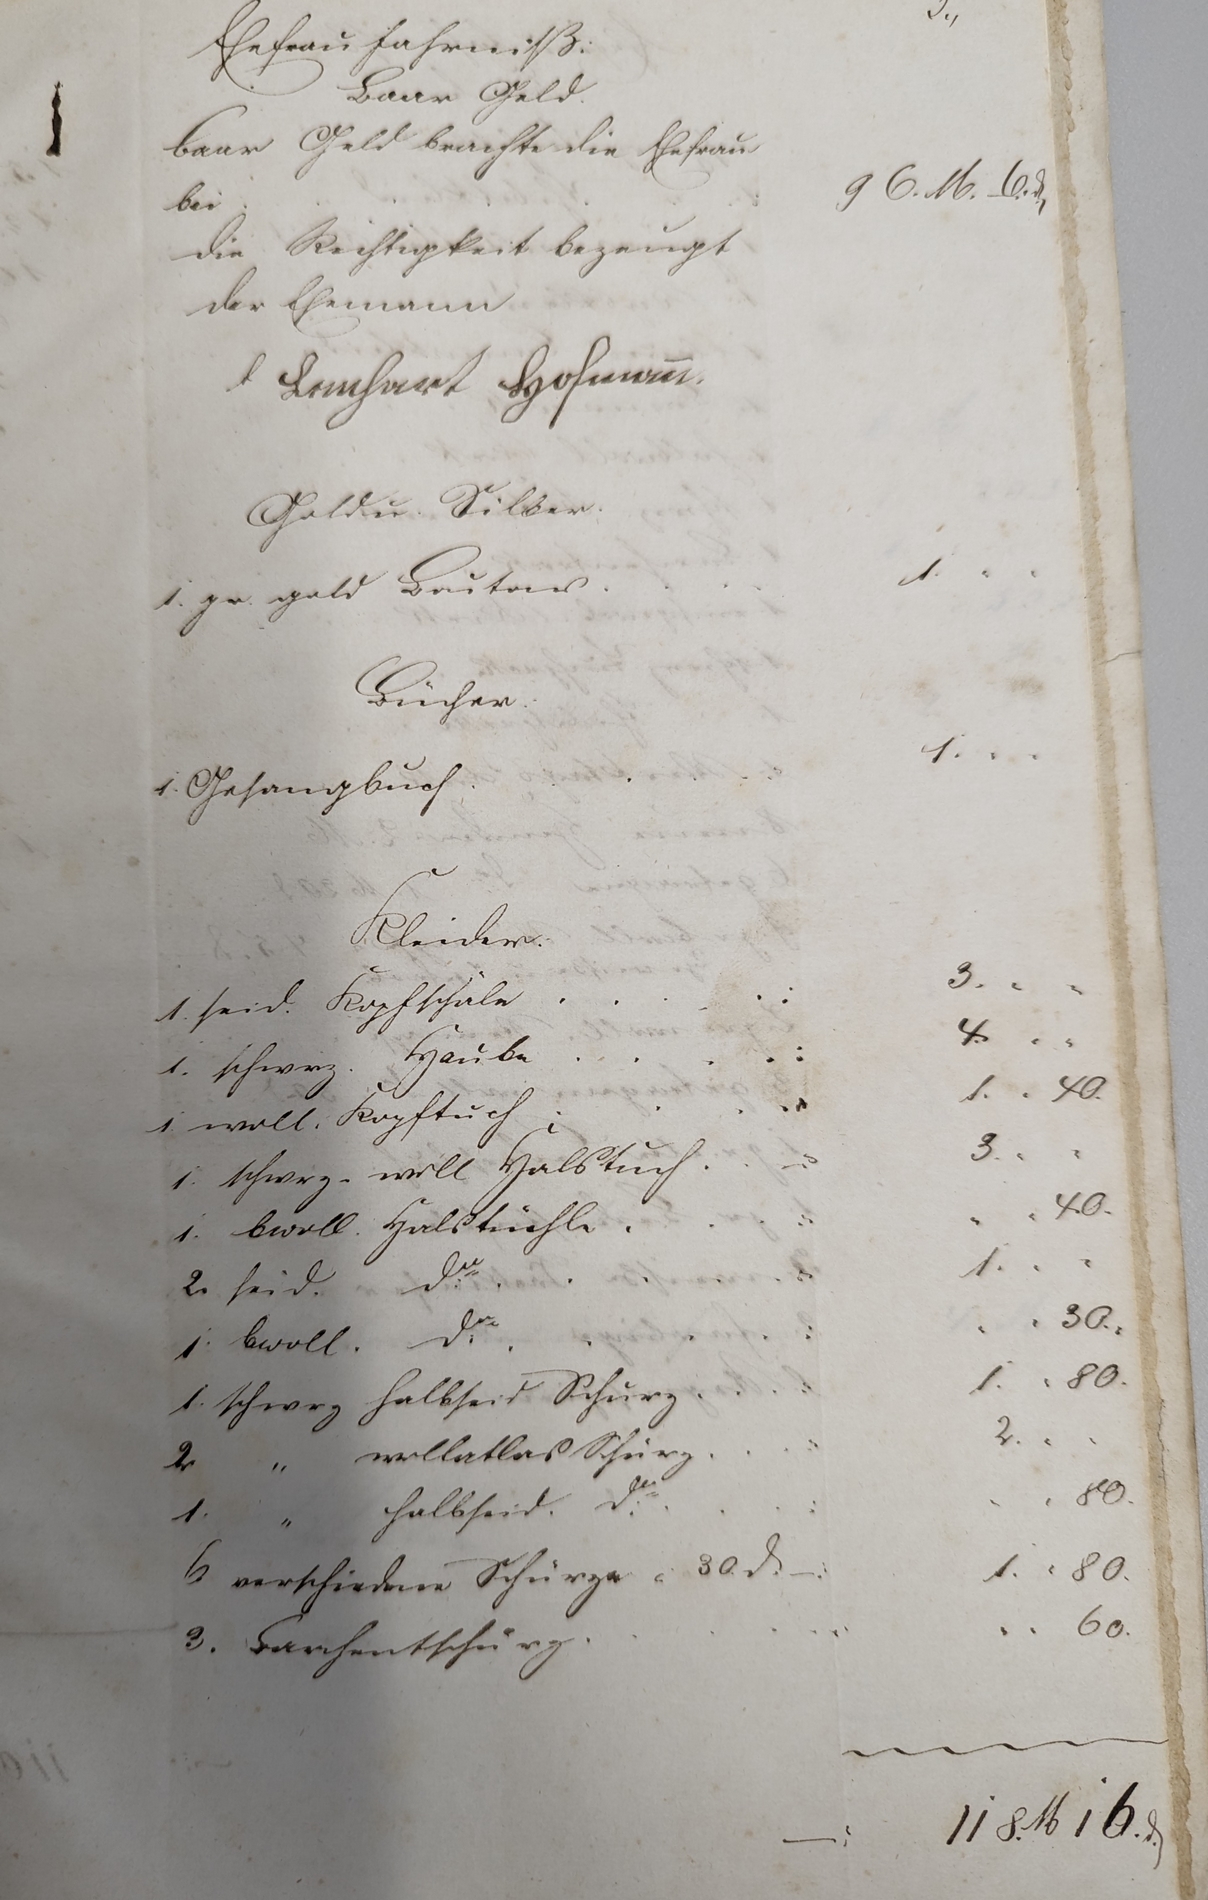 3.,,
Ehefrau Fahrniß:
Baar Geld.
baar Geld brachte die Ehefrau
bei . 96. M. 6. d,
die Richtigkeit bezeugt
der Ehemann
Lenhart Hofmann.
Gold u. Silber.
1. pr. gold Boutons . . . 1. " "
Bücher.
1. Gesangbuch . . . . 1. " "
Kleider.
1. seid. Kopfschäle . . . . : 3. " "
1. schwrz. Haube . . . . : 4. " "
1 woll. Kopftuch . . . " 1. " 40.
1. schwrz. woll Halstuch . . " 3. " "
1. bwoll. Halstüchle . . . : " " 40.
2. seid. do. . . . . : 1. " "
1. bwoll. do. . . . . : " " 30.,
1. schwrz halbseid Schurz . . . : 1. " 80.
2 " wollatlas Schürz . . : 2. " "
1. " halbseid. do. . . : " " 80.
6 verschiedene Schürze a 30 d. —: 1. " 80.
3. Barchentschürz . . . . " " 60.
—: 118. M 16. d.